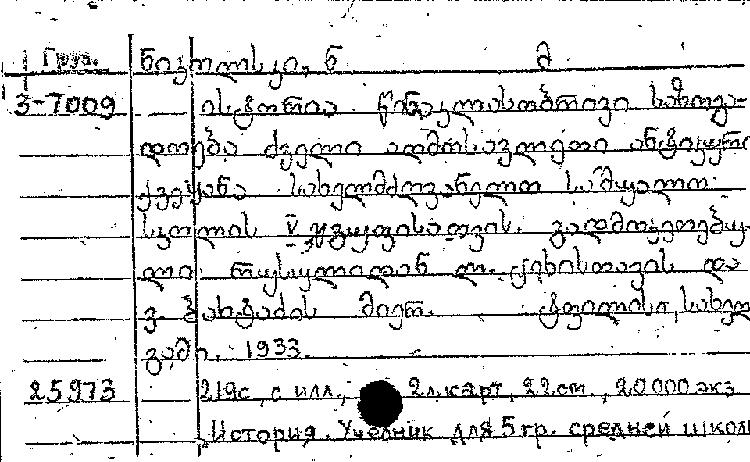 Груз. ნიკოლსკი, ნ მ
3-7009 ისტორია წინაკლასობრივი საზოგა-
დოება ძველი აღმოსავლეთი ანტიკური
ქვეყანა სახელმძღვანელო საშუალო
სკოლის V ჯგუფისათვის. გადმოკეთებუ-
ლი რუსულიდან ლ. ქიხისთავის და
ვ. მიერ. ტფილისი, სახელ
გამი. 1933.
25973 219с, с илл., 2 л. карт, 22 cm., 20000 экз
История. Учебник для 5 гр. средней школ